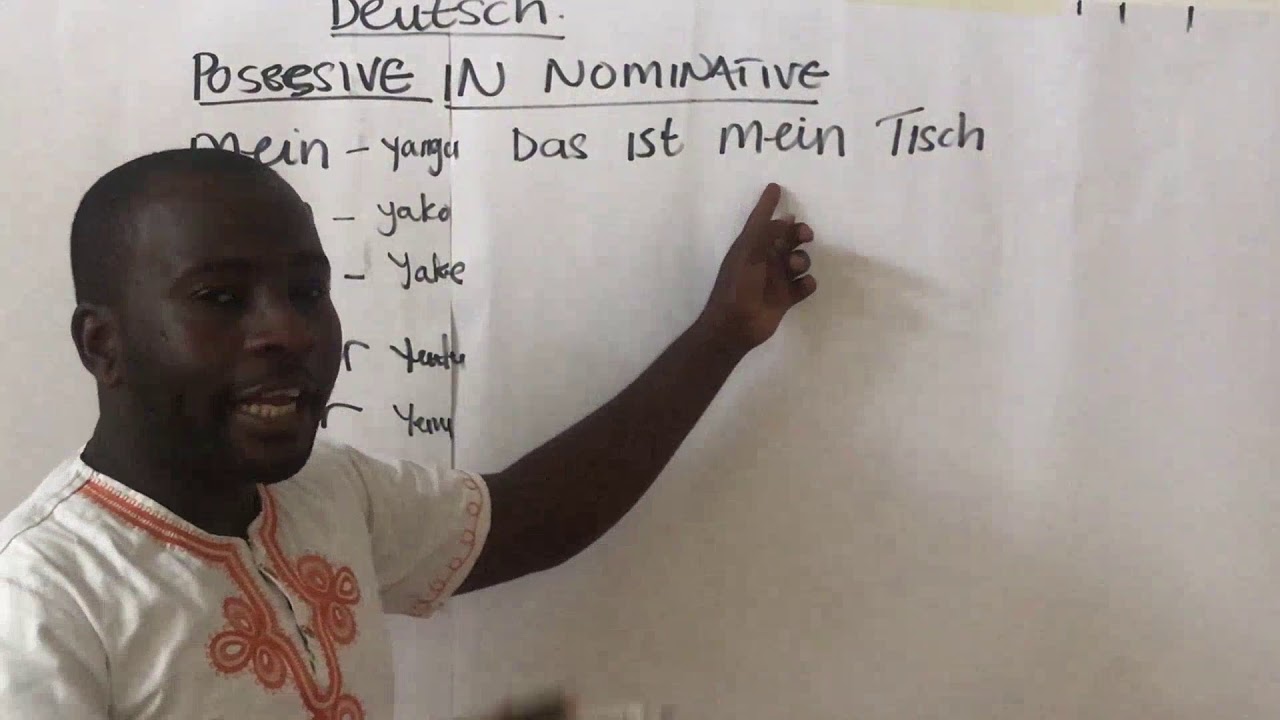 Deutsch.
POSSESIVE IN NOMINATIVE
mein – yangu Das ist mein Tisch
– yako
– Yake
r Yentu
r Yenu